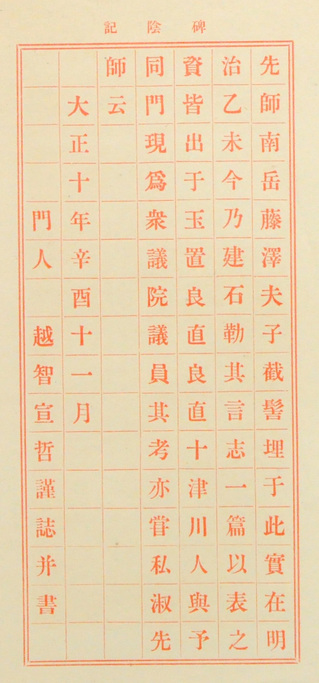 碑陰記
先師南岳藤澤夫子截髻埋于此實在明
治乙未今乃建石勒其言志一篇以表之
資皆出于玉置良直良直十津川人與予
同門現爲衆議院議員其考亦甞私淑先
師云
大正十年辛酉十一月
門人 越智宣哲謹誌并書